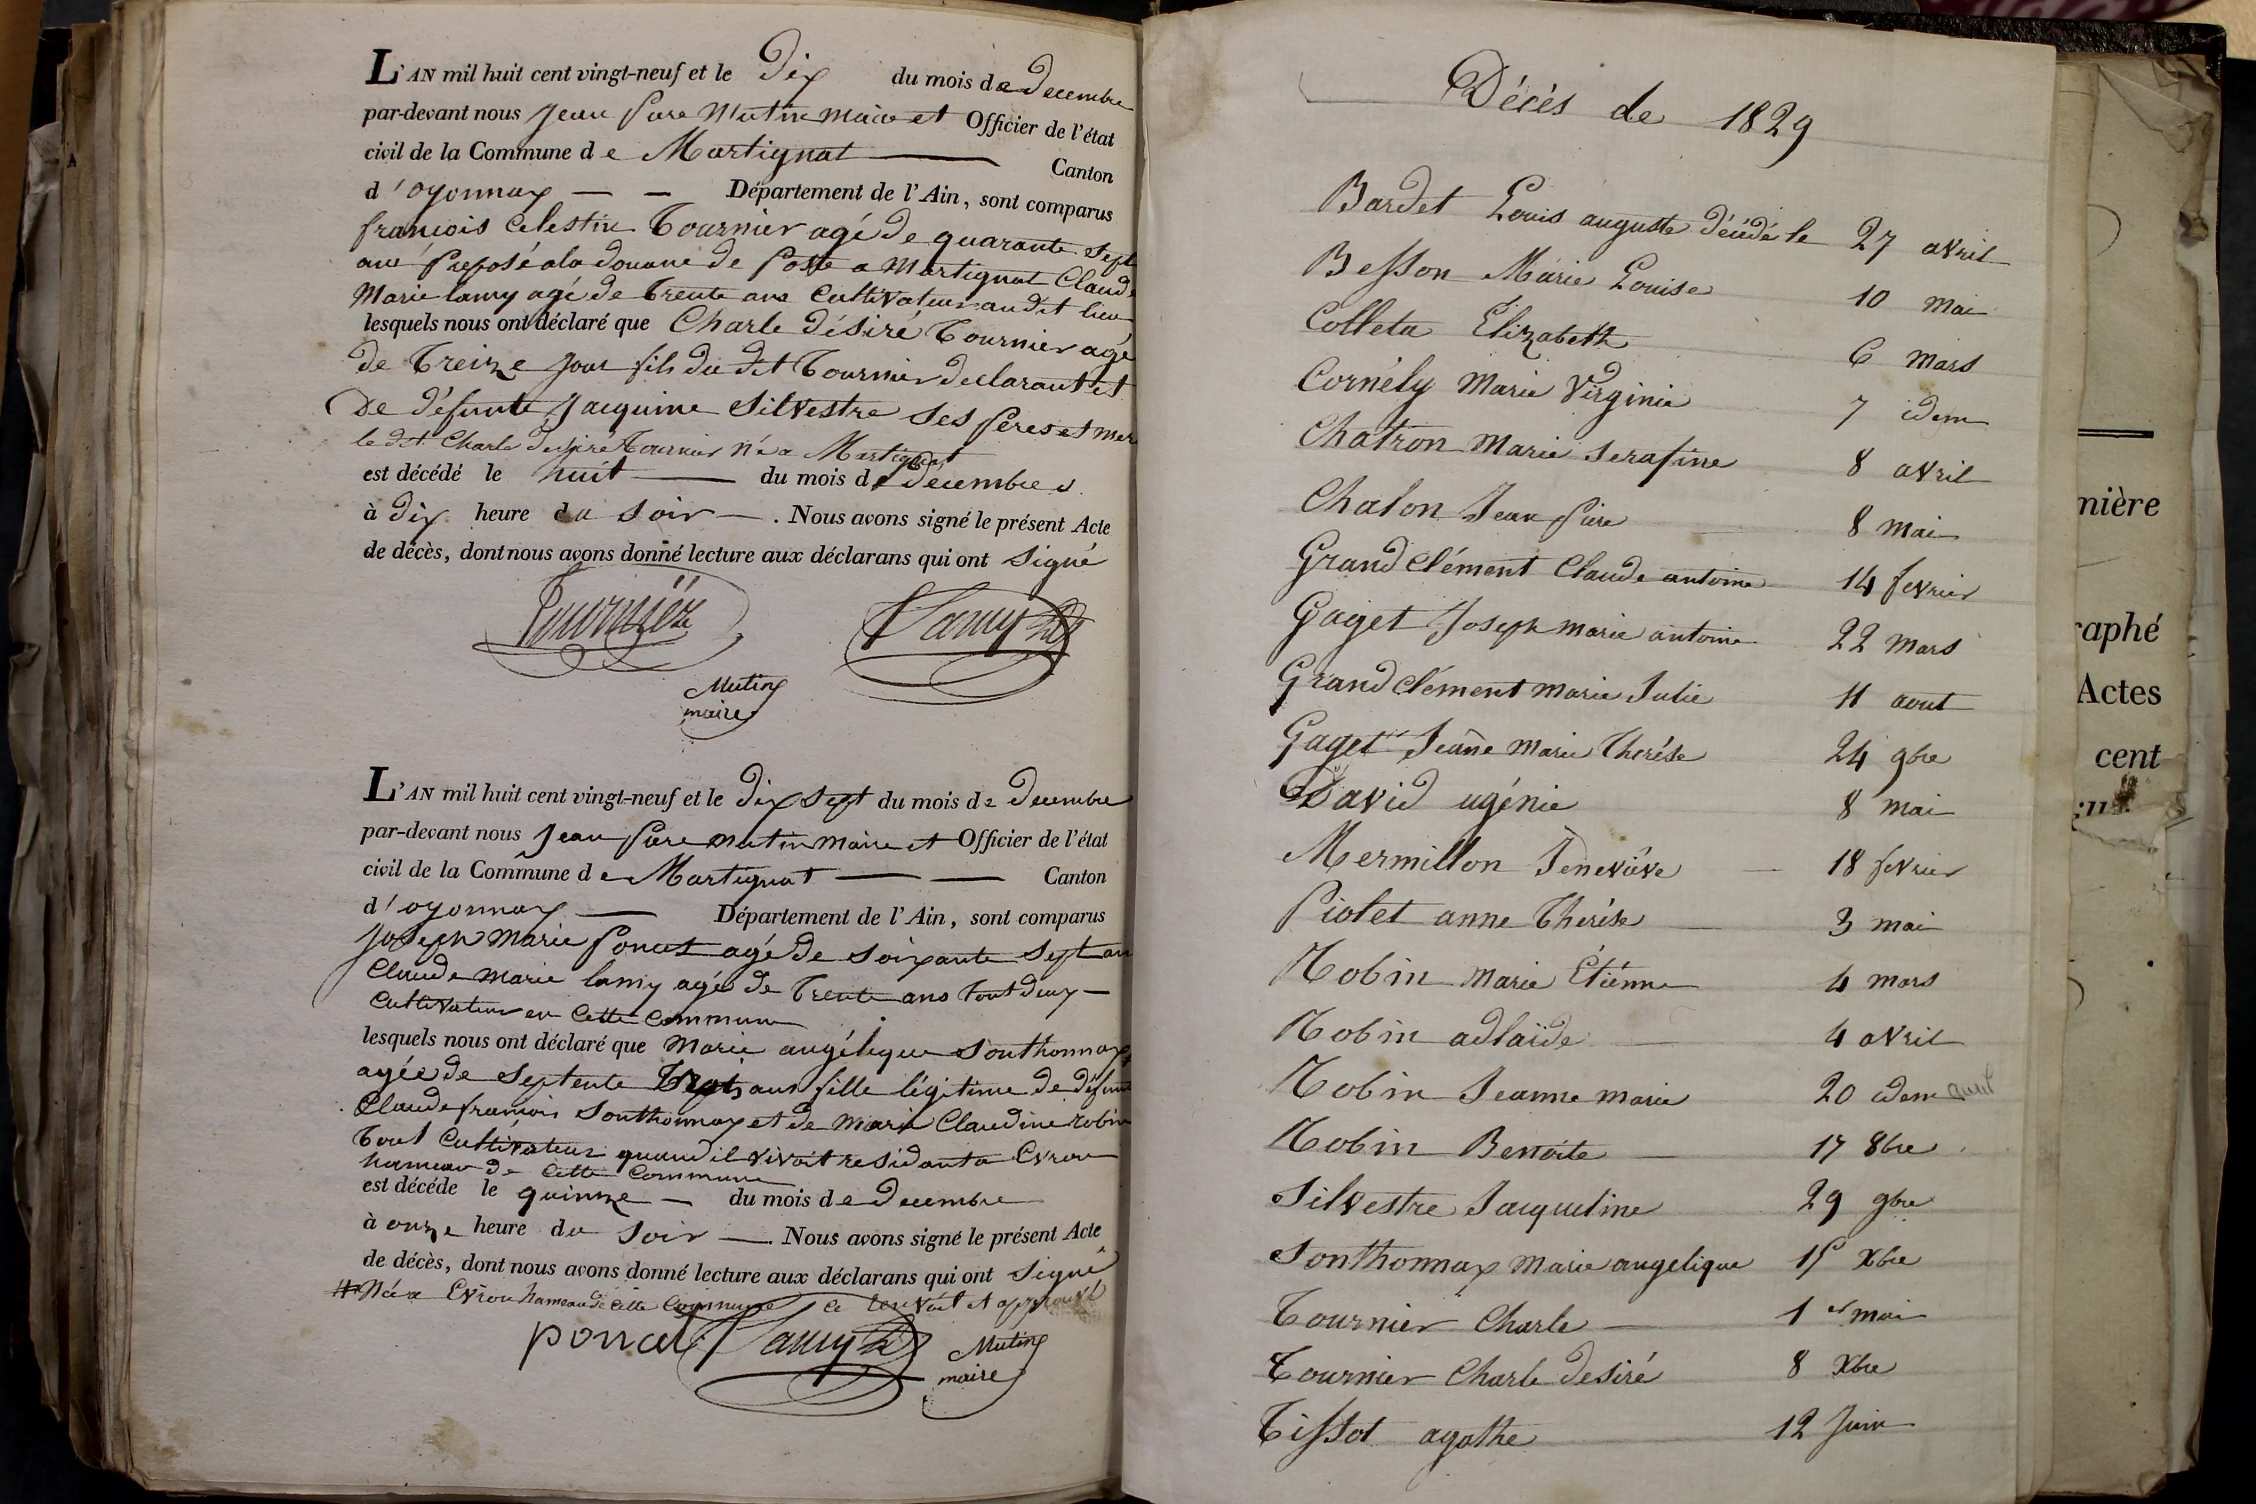 L'AN mil huit cent vingt-neuf et le Dix du mois de Decembre
par-devant nous Jean Piere Mutin maire et Officier de l'état
civil de la Commune de Martignat Canton
d'oyonnax Département de l'Ain, sont comparus
francois Celestin Tournier agé de quarante Sept
ans Préposé ala douane de Poste a Martignat Claude
Marie lamy agé de Trente ans Cultivateur audit lieu
lesquels nous ont déclaré que Charle désiré Tournier agé
de Treize Jour fils du dit Tournier declarant et
De défunte Jacquine Silvestre Ses Peres et mer
le dit Charle desiré Tournier né a Martignat
est décédé le huit du mois de Decembre
à dix heure du Soir . Nous avons signé le présent Acte
de décès, dont nous avons donné lecture aux déclarans qui ont Signé
Tournier Lamy
Mutin
maire
L'AN mil huit cent vingt-neuf et le Dix Sept du mois de Decembre
par-devant nous Jean Piere Mutin Maire et Officier de l'état
civil de la Commune de Martignat Canton
d'oyonnax Département de l'Ain, sont comparus
Joseph Marie Poncet agé de Soixante Sept an
Claude Marie lamy agé de Trente ans tout deux
Cultivateur en Cette Commune
lesquels nous ont déclaré que Marie angélique Sonthonnax
agée de Septente Trois ans fille légitime de défunt
Claude francois Sonthonnax et de Marie Claudine robin
Tout Cultivateur quand il vivait residant a Evron
hameau de Cette Commune
est décédé le quinze du mois de Decembre
à onze heure du Soir . Nous avons signé le présent Acte
de décès, dont nous avons donné lecture aux déclarans qui ont Signé
Née a Evron hameau de Cette Commune ce renvoit et approuvé
poncet Lamy Mutin
maire
Décès de 1829
Bardet Louis auguste décédé le 27 avril
Besson Marie Louise 10 mai
Colleta Elizabeth 6 mars
Cornély Marie Virginie 7 idem
Chatron Marie Serafine 8 avril
Chalon Jean Piere 8 mai
Grand Clément Claude antoine 14 fevrier
Gaget Joseph marie antoine 22 mars
Grand clément marie Julie 11 aout
Gaget Jeanne Marie Therése 24 9bre
David ugénie 8 mai
Mermillon Jeneviéve 18 fevrier
Piolet anne Therése 3 mai
Robin Marie Etiénne 4 mars
Robin adlaïde 4 avril
Robin Jeanne marie 20 idem avril
Robin Benoite 17 8bre
Silvestre Jacqueline 29 9bre
Sonthonnax Marie angelique 15 Xbre
Tournier Charle 1er mai
Tournier Charle Desiré 8 Xbre
Tissot agathe 12 Juin
nière
raphé
Actes
cent